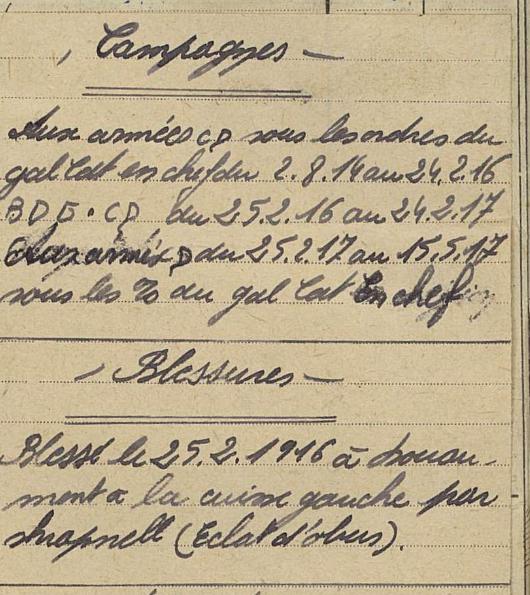 Campagnes
Aux armées CD sous les ordres du
gal Cdt en chef du 2.8.14 au 24.2.16
BDF. CD du 25.2.16 au 24.2.17
Aux armées D du 25.2.17 au 15.5.17
sous les % du gal Cdt En chef
Blessures
Blessé le 25.2.1916 à Douau-
mont a la cuisse gauche par
shrapnell (Eclat d'obus).